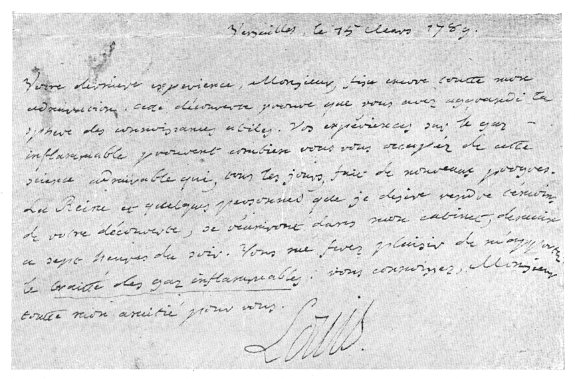 Versailles, le 15 Mars 1789.
Votre derniere experience, Monsieur, fixe encore toutte mon
admiration. cette découverte prouve que vous avez aggrandi la
sphere des connoissances utiles. Vos expériences sur le gaz
inflammable prouvent combien vous vous occupez de cette
science admirable qui, tous les jours, fait de nouveaux progres.
La Reine et quelques personnes que je desire rendre temoins
de votre découverte, se réuniront dans mon cabinet, demain
a sept heures du soir. Vous me ferez plaisir de m'apporter
le traitté des gaz inflammables. vous connoissez, Monsieur
toutte mon amitié pour vous.
Louis.